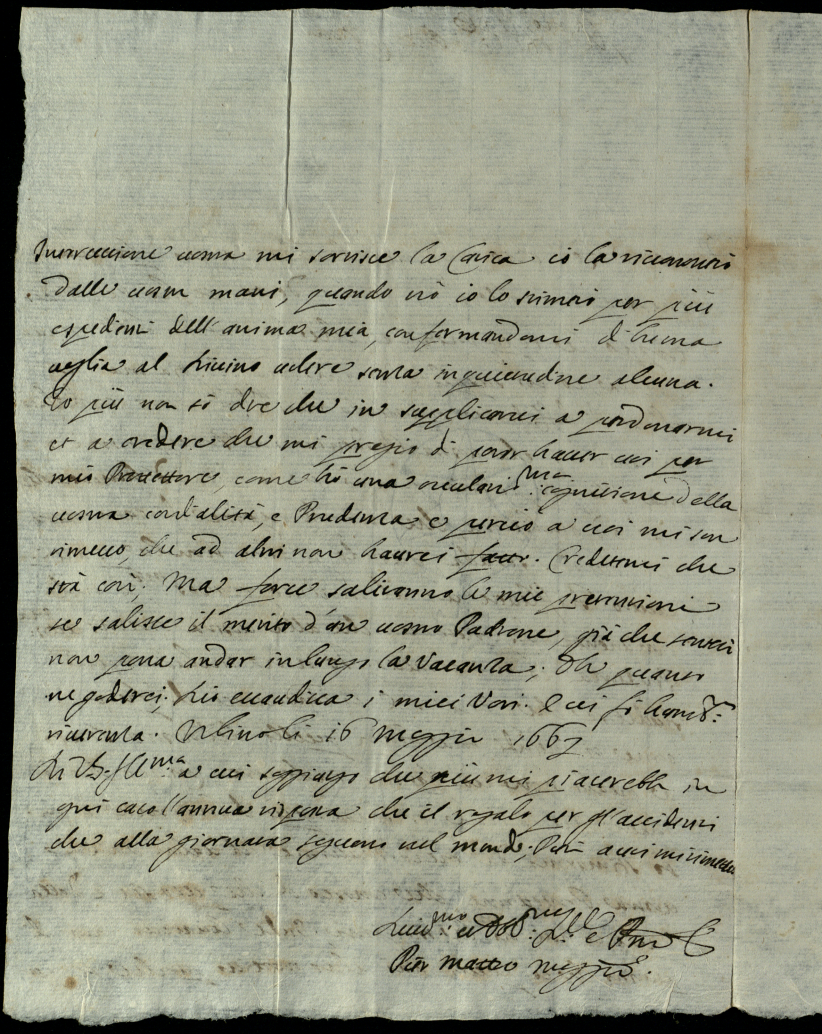 Intercessione vostra mi sortisce la Carica io la riconoscerò
dalle vostre mani, quando nò io lo stimerò per più
espediente dell'anima mia, conformandomi di buona
voglia al Divino volere senza inquietudine alcuna.
Io più non sò dire che in supplicarvi a perdonarmi
et a credere che mi pregio di poter haver voi per
mio Protettore, come hò una oculatis.ma cognitione della
vostra cordialità, e Prudenza e perciò a voi mi son
rimesso, che ad altri non haurei fatto. Credetemi che
stà così. Ma forse saliranno le mie pretensioni
se salisce il merito d'un vostro Padrone, già che
non potrà andar in lungo la Vacanza; Oh quanto
ne goderei; Dio esaudisca i miei Voti. E vi fò
riverenza. Urbino li 16 Maggio 1667
Di V.S. Ill.ma a cui soggiungo che più mi piacerebbe in
quel caso l'annua risposta che il regalo per gl'accidenti
che alla giornata seguono nel mondo;
Pier Matteo